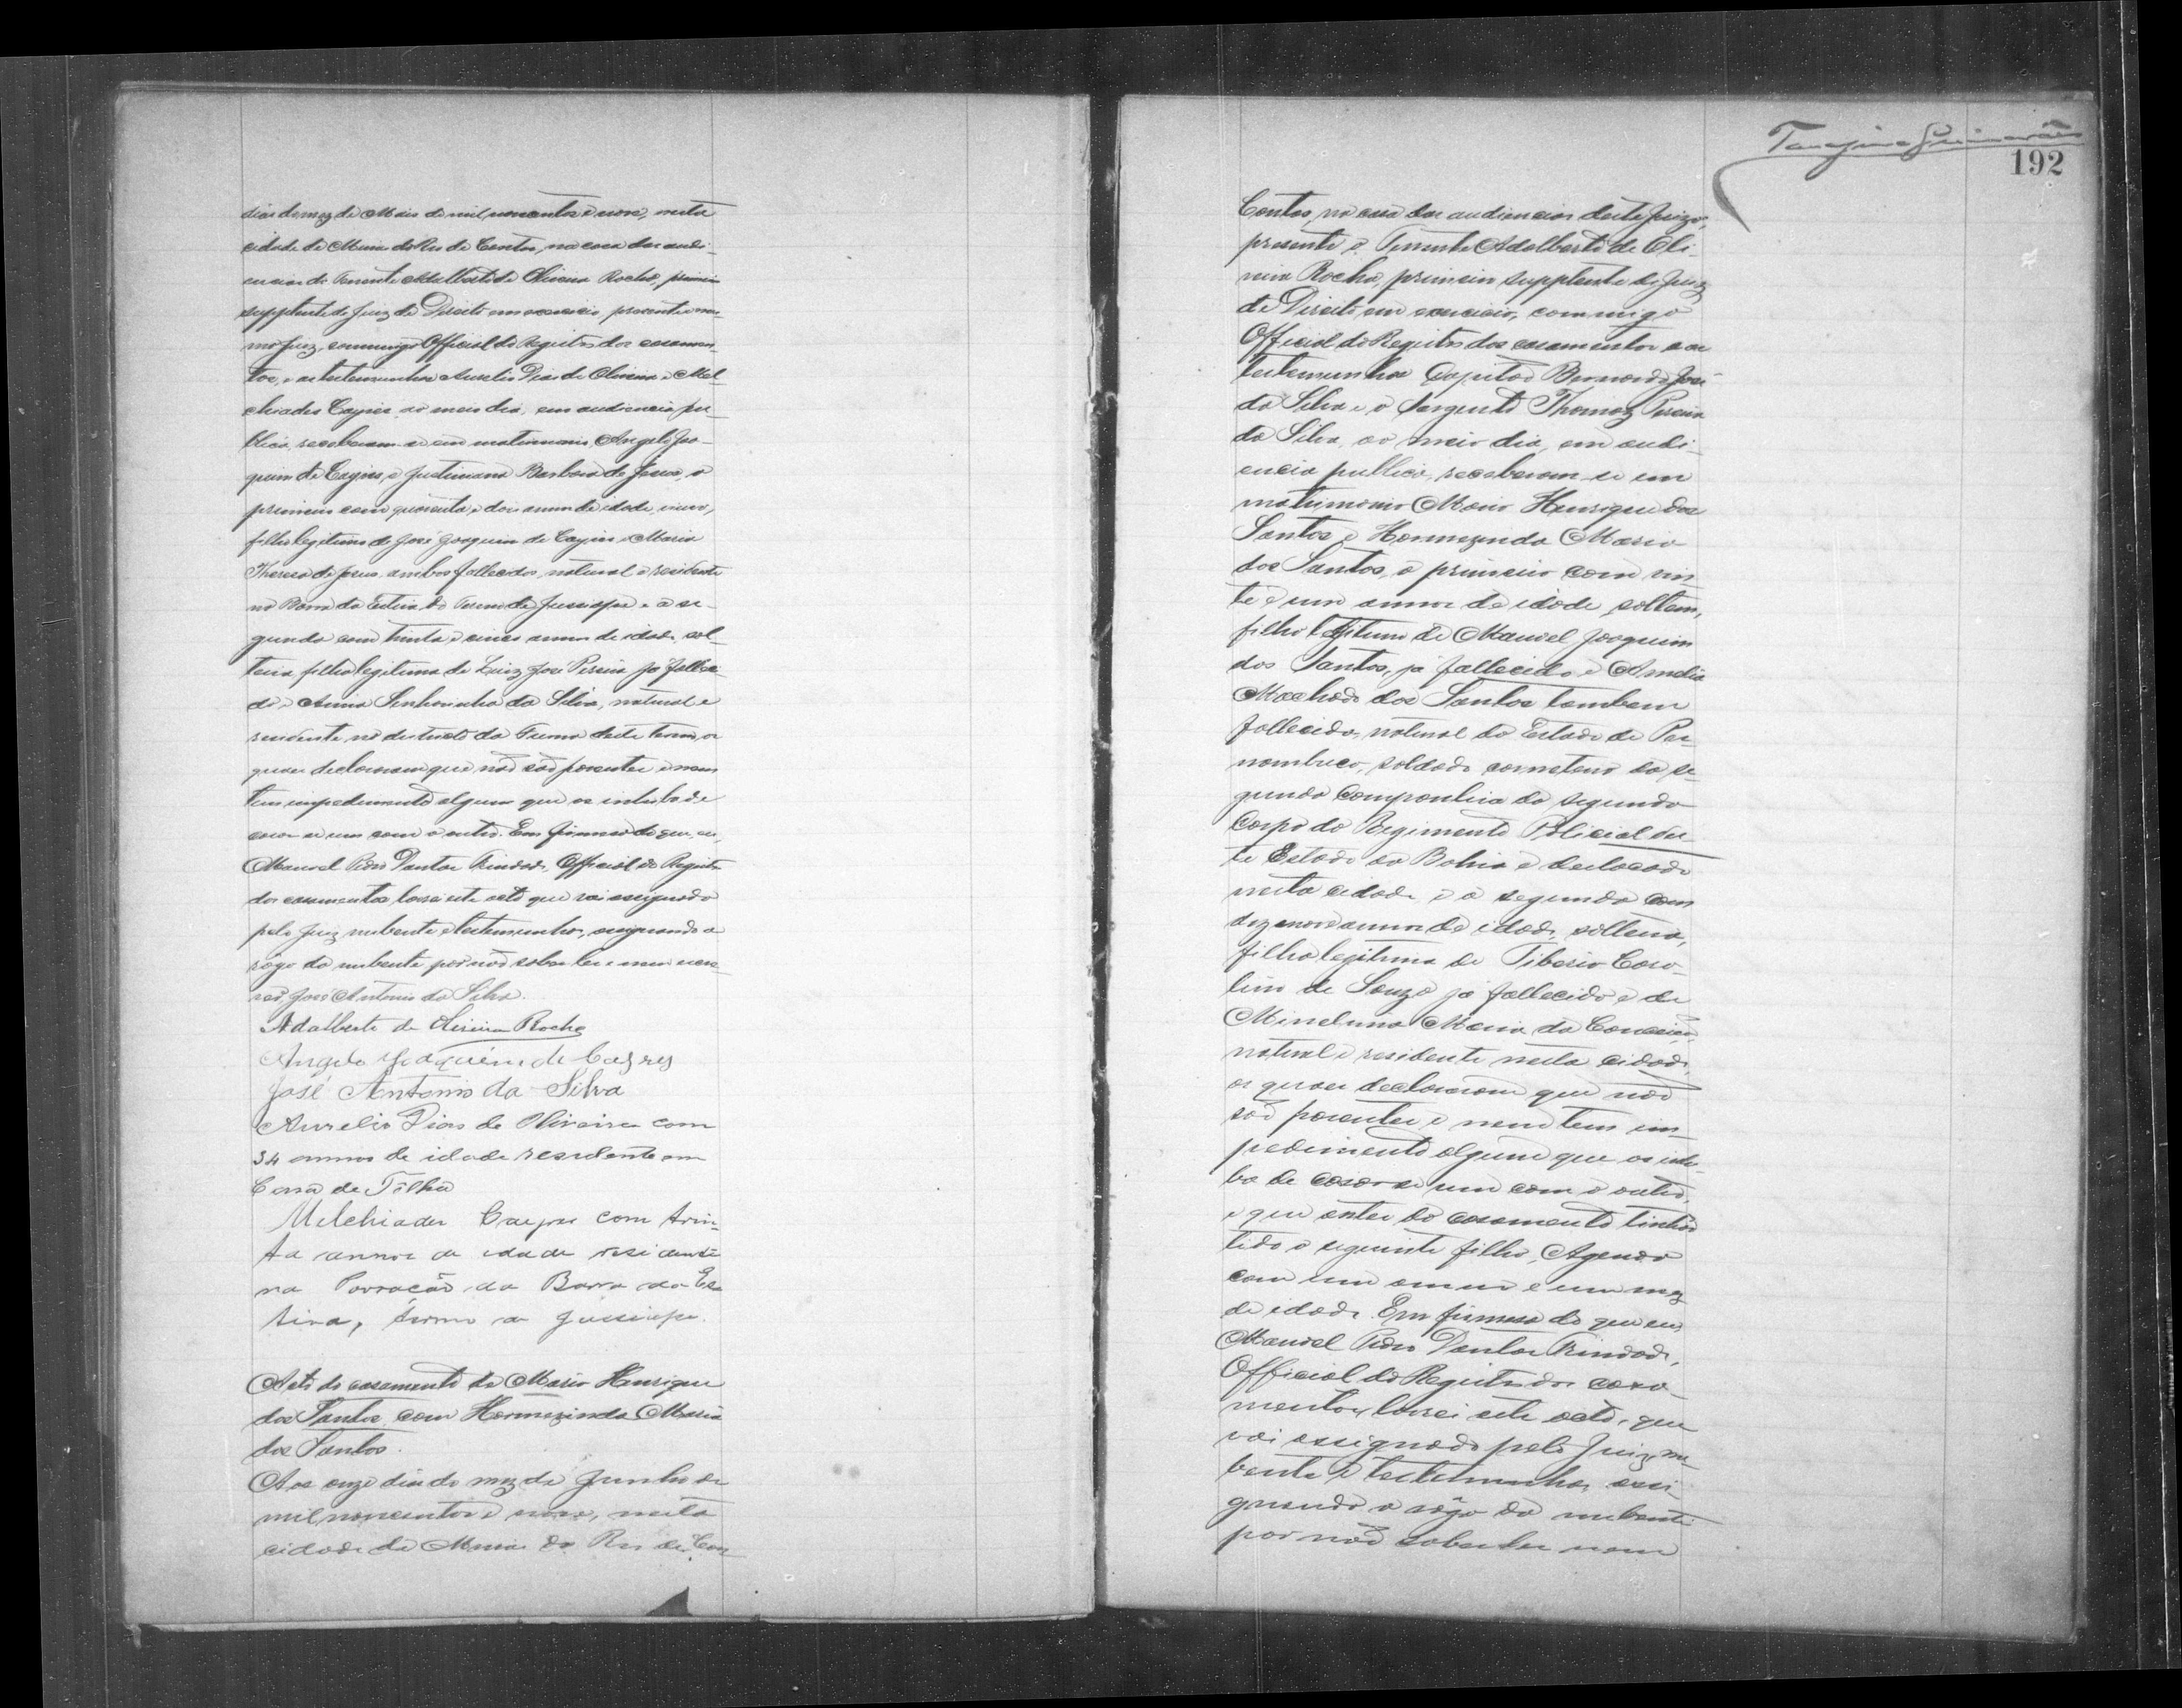 dias do mez de Maio de mil novecentos e nove, nesta
cidade de Minas do Rio de Contas, na casa das audi-
encias do Tenente Adalberto de Oliveira Rocha, primeiro
supplente do Juiz de Direito em exercicio, presente o mes-
mo Juiz, commigo Official do Registro dos casamen-
tos, e as testemunhas Aurelio Dias de Oliveira e Mel-
chiades Cayres ao meio dia, em audiencia pu-
blica, receberam-se em matrimonio Angelo Joa-
quim de Cayres, e Justiniana Barbara de Jesus, o
primeiro com quarenta e dois annos de idade, viuvo,
filho legitimo de José Joaquim de Cayres e Maria
Thereza de Jesus, ambos fallecidos, natural e residente
na Barra da Estiva do Termo de Jussiape, e a se-
gunda com trinta e cinco annos de idade, sol-
teira filha legitima de Luiz José Pereira já falleci-
do e Anna Senhorinha da Silva, natural e
residente no destricto do deste termo, os
quaes declararam que não são parentes e nem
tem impedimento algum que os iniba de
casar-se um com o outro. Em firmeza do que, eu,
Manoel Pedro Dantas Trindade, Official do Registro
dos casamentos, lavrei este acto que vai assignado
pelo Juiz, nubente e testemunhas, assignando a
rôgo da nubente por não saber ler e nem escre-
ver, José Antonio da Silva.
Adalberto de Oliveira Rocha
Angelo Joaquim de Cayres
José Antonio da Silva
Aurelio Dias de Oliveira com
34 annos de idade residente em
Casa de Têlha
Melchiades Cayres com trin-
ta annos de idade residente
na Povoação da Barra da Es-
tiva, termo de Jussiape.
Acto do casamento de Mario Henrique
dos Santos com Hermezinda Maria
dos Santos.
Aos onze dias do mez de Junho de
mil novecentos e nove, nesta
cidade de Minas do Rio de Con-
192
Contas, na casa das audiencias deste Juizo,
presente o Tenente Adalberto de Oli-
veira Rocha, primeiro supplente do Juiz
de Direito em exercicio, commigo
Official do Registro dos casamentos e as
testemunhas Capitão Bernardo José
da Silva e o Sargento Thomaz Pereira
da Silva, ao meio dia, em audi-
encia publica, receberam-se em
matrimonio Mario Henrique dos
Santos e Hermezinda Maria
dos Santos, o primeiro com vin-
te e um annos de idade, solteiro,
filho legitimo de Manoel Joaquim
dos Santos, já fallecido e Amelia
Machado dos Santos tambem
fallecida, natural do Estado de Per-
nambuco, soldado corneteiro da se-
gunda Companhia do segundo
Corpo do Regimento Policial des-
te Estado da Bahia e destacado
nesta cidade, e a segunda com
dezenove annos de idade, solteira,
filha legitima de Tiberio Caro-
lino de Souza já fallecido e de
Minelvina Maria da Conceição,
natural e residente nesta cidade,
os quaes declararam que não
são parentes e nem tem im-
pedimento algum que os ini-
ba de casar-se um com o outro,
e que antes do casamento tinhão
tido o seguinte filho, Agenor
com um anno e um mez
de idade. Em firmeza do que eu,
Manoel Pedro Dantas Trindade,
Official do Registro dos casa-
mentos, lavrei este acto, que
vai assignado pelo Juiz, nu-
bente e testemunhas, assi-
gnando a rôgo da nubente
por não saber ler nem